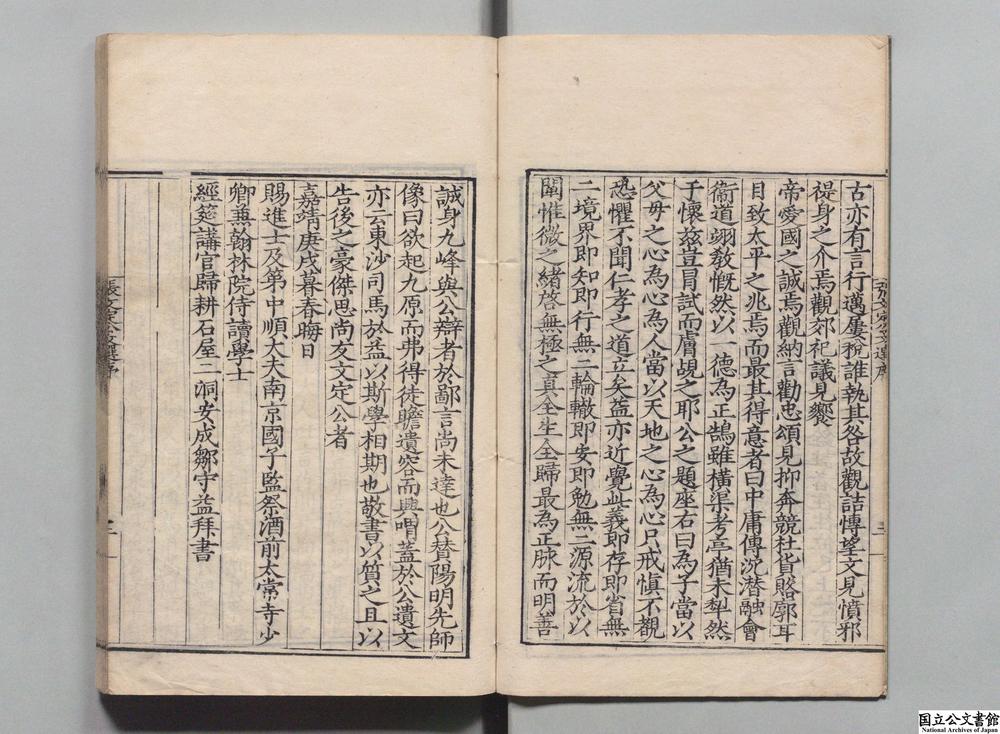 古亦有言行邁屢稅誰執其咎故觀詰傳望文見憤邪
禔身之介焉觀郊祀議見饗
帝愛國之誠焉觀納言勸忠頌見抑奔競杜貨賂郭耳
目致太平之兆焉而最其得意者曰中庸傳沉潜融會
衞道翊敎慨然以一德為正鵠雖橫渠考亭猶未犁然
于懷兹豈冐試而膚覘之耶公之題座石曰為子當以
父毋之心為心為人當以天地之心為心只戒慎不覩
恐懼不聞仁孝之道立矣益亦近覺此義即存即省無
二境界即知即行無二輪轍即安即勉無二源流於以
闡惟微之緒啓無極之真全生全歸最為正脉而明善
誠身九峰與公辯者於鄙言尚未達也公賛陽明先師
像曰欲起九原而弗得徒瞻遺容而興喟盖於公遺文
亦云東沙司馬於益以斯學相期也敬書以質之且以
告後之豪傑思尚友文定公者
嘉靖庚戌暮春晦日
賜進士及第中順大夫南京國子監祭酒前太常寺少
卿兼翰林院侍讀學士
經筵講官歸耕石屋二洞安成鄒守益拜書
張文定公文選序
三
國立公文書館
National Archives of Japan